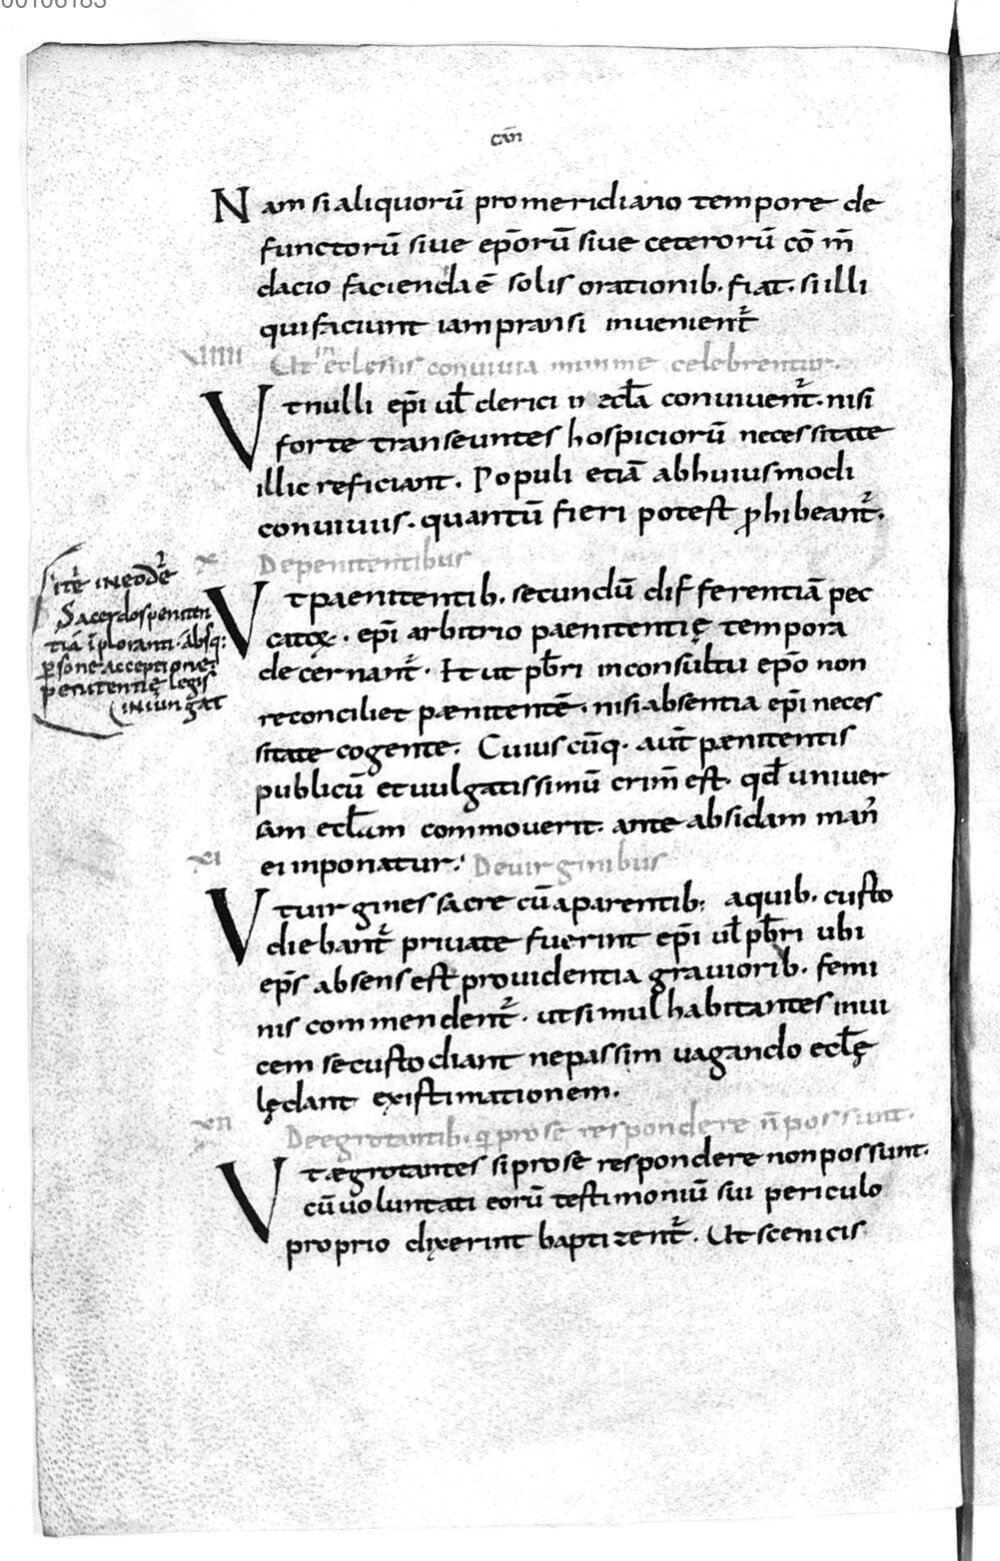 00106183
cāñ
Nam si aliquorū promeridiano tempore de
functorū siue ep̄orū siue ceterorū cō m̄
dacio facienda ē solis orationib. fiat. si illi
qui faciunt iam pransi inuenient᷑
VIIII Ut in ecclesiis conuiuia minime celebrentur.
Vt nulli ep̄i ul̄ clerici in eccl̄a conuiuent᷑. nisi
forte transeuntes hospiciorū necessitate
illic reficiant. Populi etiā ab huiusmodi
conuiuiis. quantū fieri potest ꝓhibeant᷑.
X De penitentibus
Vt paenitentib. secundū differentiā pec
catoꝝ. ep̄i arbitrio paenitentię tempora
decernant᷑. Et ut pb̄ri inconsultu ep̄o non
reconciliet pænitentē. nisi absentia ep̄i neces
sitate cogente. Cuiuscūq. aut̄ pænitentis
publicū et uulgatissimū crim̄ est. qd̄ uniuer
sam ecl̄am commouerit. ante absidam man᷑
ei inponatur. XI De uirginibus
Vt uirgines sacre cū a parentib; a quib. custo
diebant᷑ priuate fuerint ep̄i ul̄ pb̄ri ubi
ep̄s absens est prouidentia grauiorib. femi
nis commendent᷑. ut simul habitantes inui
cem se custodiant ne passim uagando ecl̄ę
lędant existimationem.
XII De egrotantib. q̄ pro se respondere n̄ possunt.
Vt ægrotantes si pro se respondere non possunt.
cū uoluntati eorū testimoniū sui periculo
proprio dixerint baptizent᷑. Ut scenicis
itē in eodē
Sacerdos peniten
tiā īploranti. absq;
ꝑsone acceptione
penitentię legis
iniungat